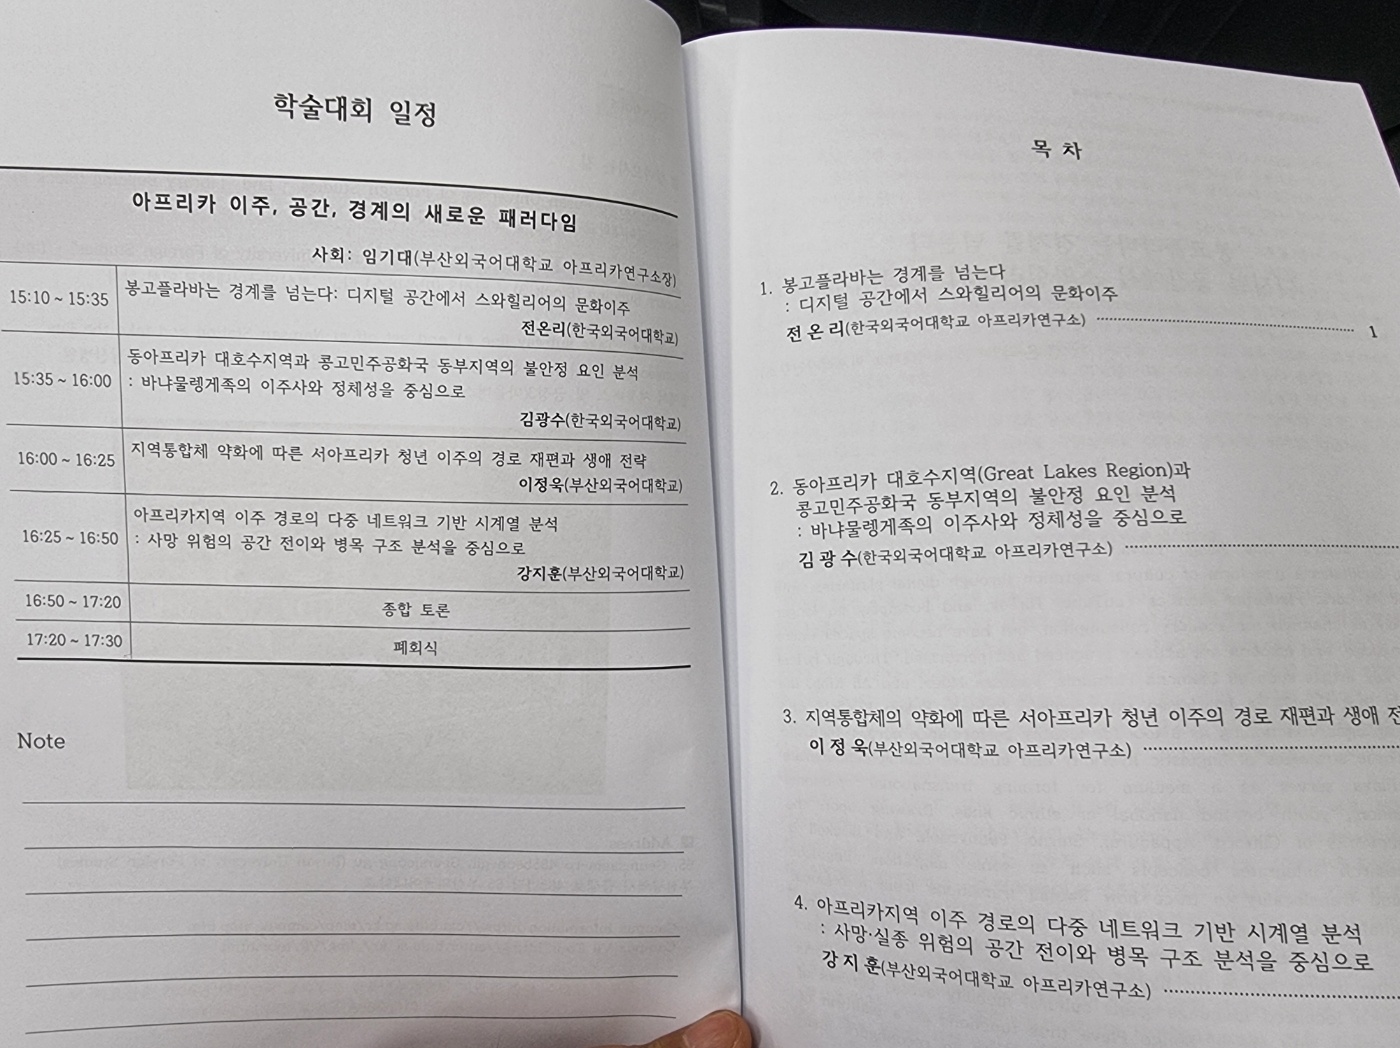 학술대회 일정
아프리카 이주, 공간, 경계의 새로운 패러다임
사회: 임기대(부산외국어대학교 아프리카연구소장)
15:10 ~ 15:35
봉고플라바는 경계를 넘는다: 디지털 공간에서 스와힐리어의 문화이주
전온리(한국외국어대학교)
15:35 ~ 16:00
동아프리카 대호수지역과 콩고민주공화국 동부지역의 불안정 요인 분석
: 바냐물렝게족의 이주사와 정체성을 중심으로
김광수(한국외국어대학교)
16:00 ~ 16:25
지역통합체 약화에 따른 서아프리카 청년 이주의 경로 재편과 생애 전략
이정욱(부산외국어대학교)
16:25 ~ 16:50
아프리카지역 이주 경로의 다중 네트워크 기반 시계열 분석
: 사망 위험의 공간 전이와 병목 구조 분석을 중심으로
강지훈(부산외국어대학교)
16:50 ~ 17:20
종합 토론
17:20 ~ 17:30
폐회식
Note
목 차
1. 봉고플라바는 경계를 넘는다
: 디지털 공간에서 스와힐리어의 문화이주
전 온 리(한국외국어대학교 아프리카연구소) 1
2. 동아프리카 대호수지역(Great Lakes Region)과
콩고민주공화국 동부지역의 불안정 요인 분석
: 바냐물렝게족의 이주사와 정체성을 중심으로
김 광 수(한국외국어대학교 아프리카연구소)
3. 지역통합체의 약화에 따른 서아프리카 청년 이주의 경로 재편과 생애
이 정 욱(부산외국어대학교 아프리카연구소)
4. 아프리카지역 이주 경로의 다중 네트워크 기반 시계열 분석
: 사망·실종 위험의 공간 전이와 병목 구조 분석을 중심으로
강 지 훈(부산외국어대학교 아프리카연구소)